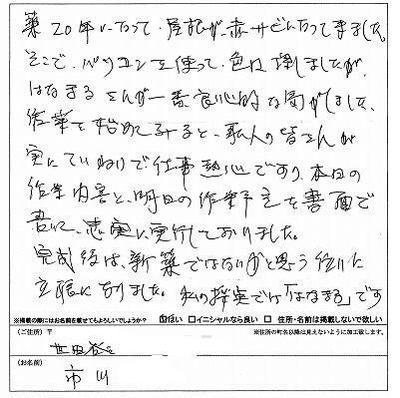 築20年になって、屋根が赤サビになってきました。
そこで、パソコンを使って、色々探しましたが、
はなまるさんが一番良心的な気がしました。
作業を始めてみると、職人の皆さんが
実にていねいで仕事熱心であり、本日の
作業内容と、明日の作業予定を書面で
書いて、忠実に実行しておりました。
完成後は、新築ではないかと思う位に
立派になりました。私の採点では「はなまる」です
※掲載の際にはお名前を載せてもよろしいでしょうか？ ☑はい □イニシャルなら良い □ 住所・名前は掲載しないで欲しい
（ご住所） 〒 ※住所の町名以降は見えないように加工致します。
世田谷区
（お名前）
市川